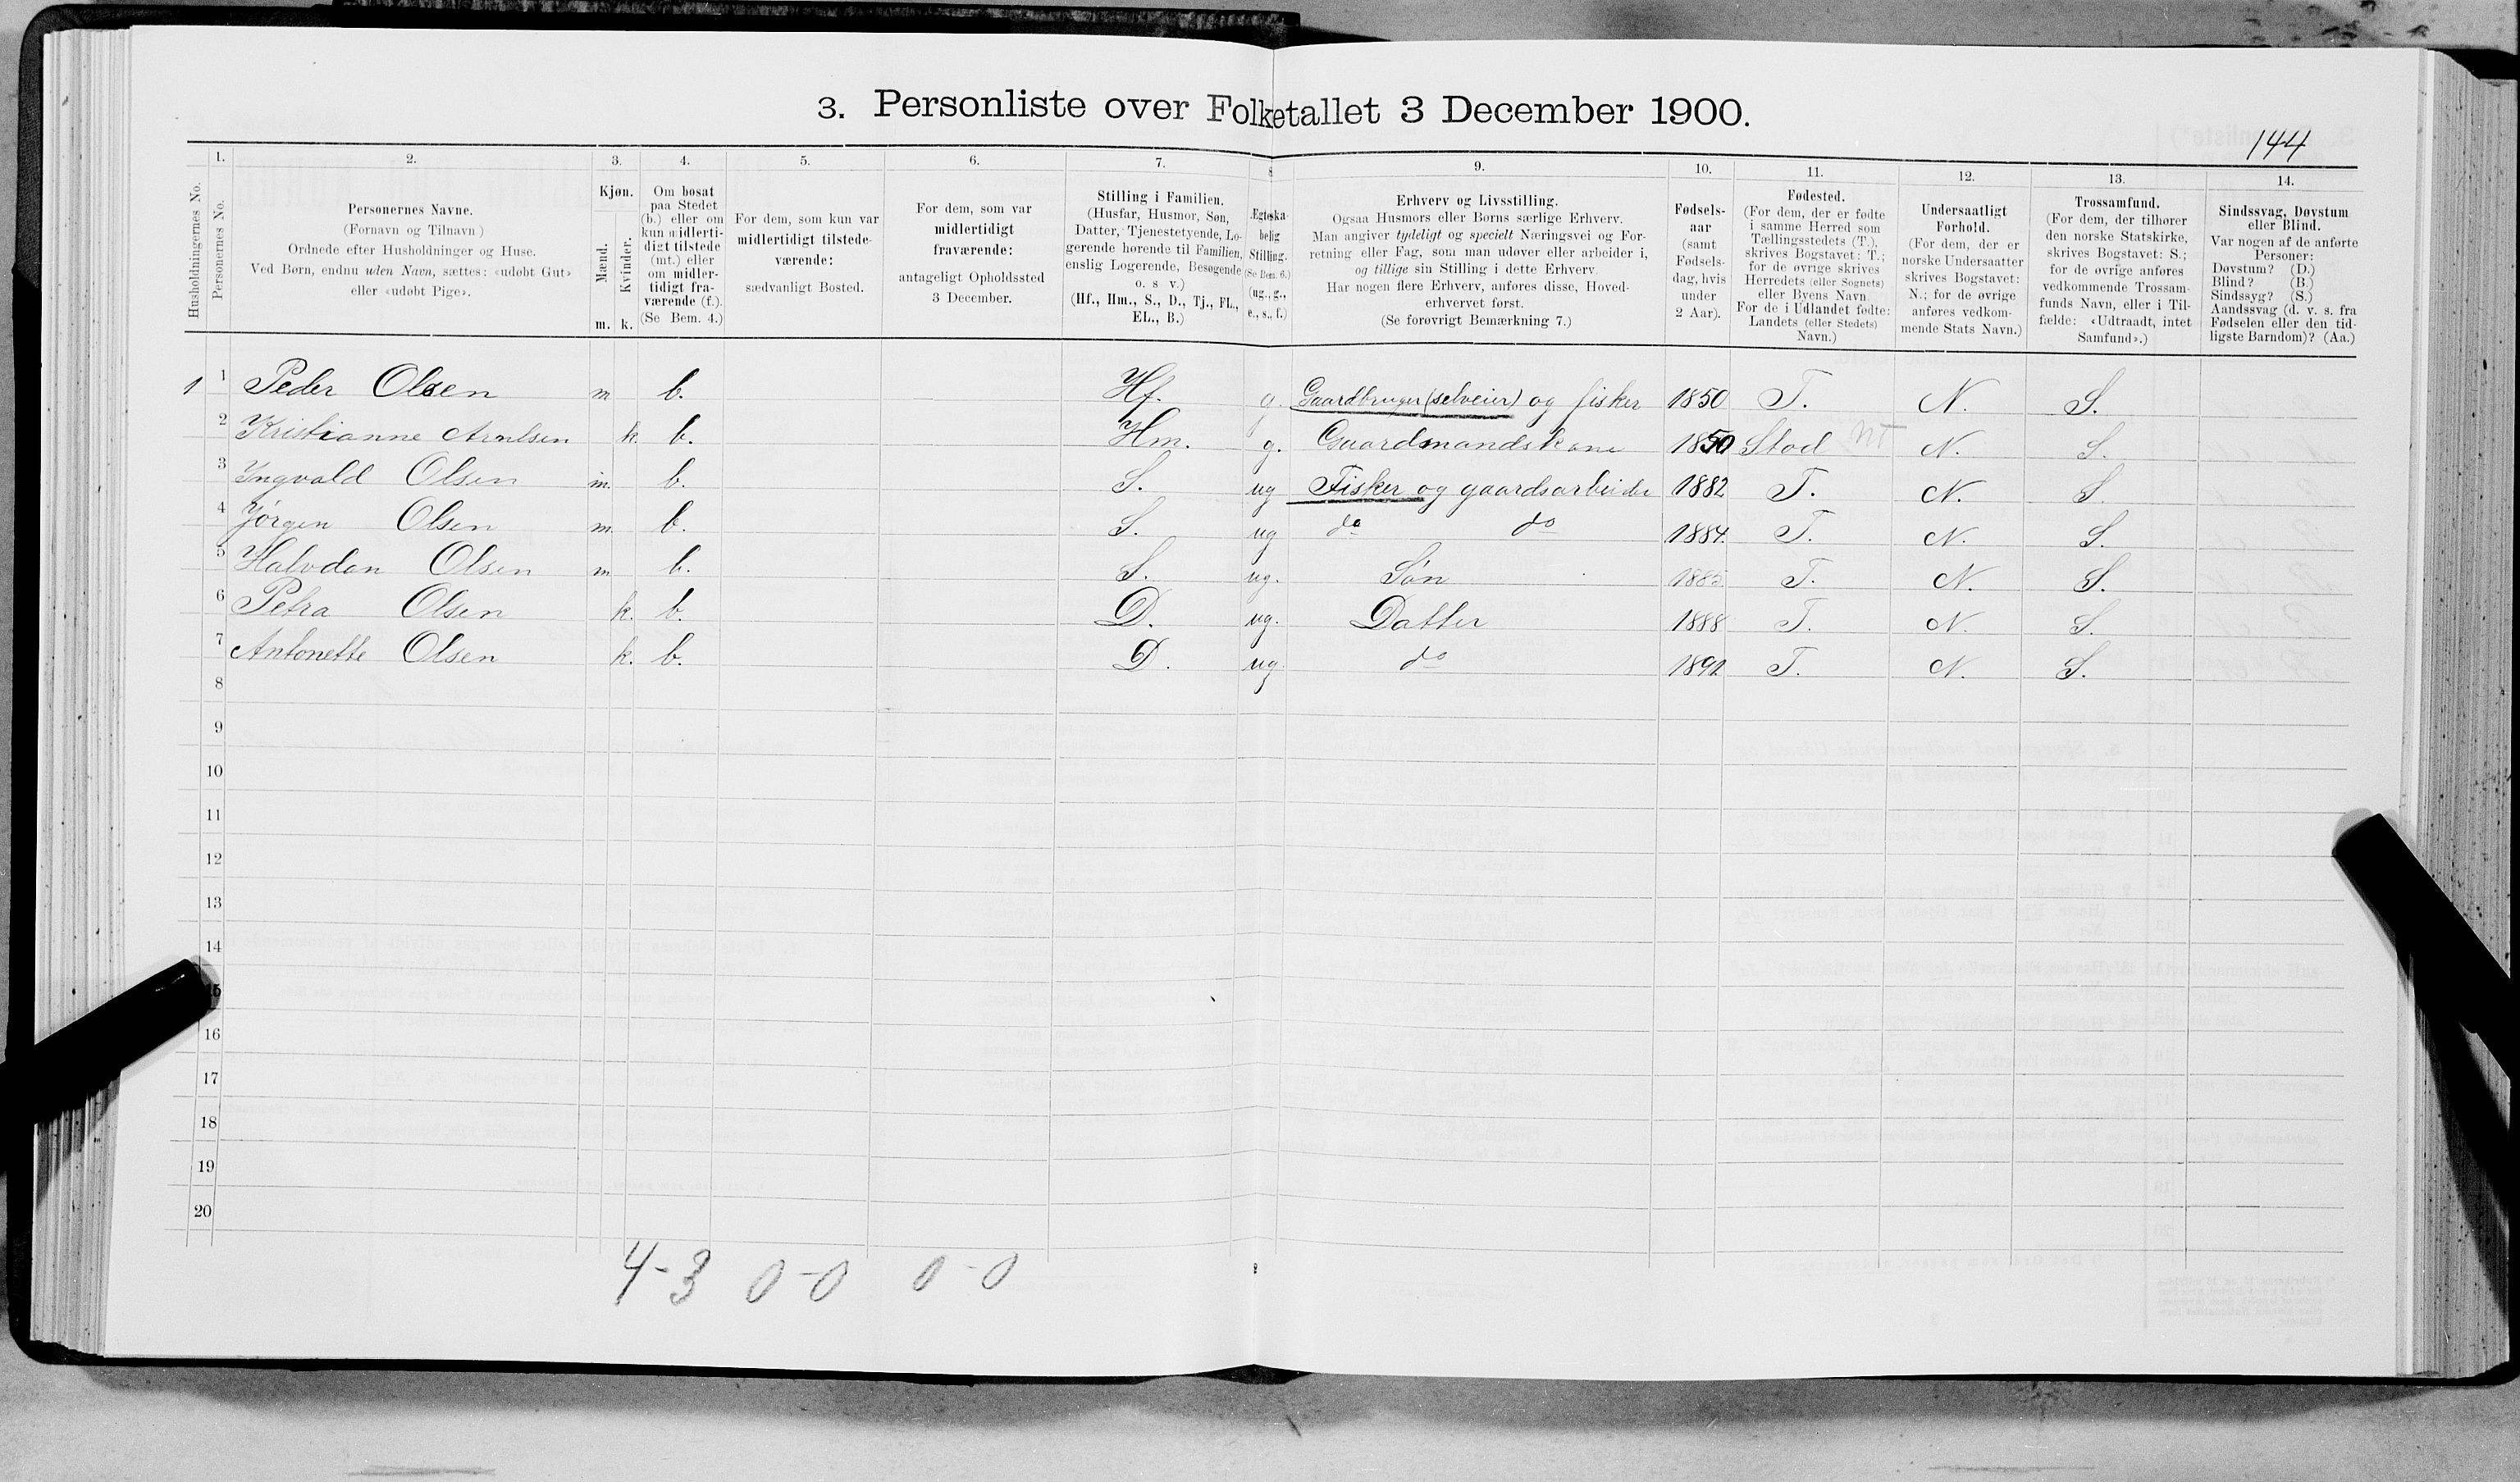 3. Personliste over Folketallet 3 December 1900.
144
1. 2. 3. 4. 5. 6. 7. 8 9. 10. 11. 12. 13. 14.
Husholdningernes No.
Personernes No.
Personernes Navne.
(Fornavn og Tilnavn)
Ordnede efter Husholdninger og Huse.
Ved Børn, endnu uden Navn, sættes: «udøbt Gut»
eller «udøbt Pige».
Kjøn.
Mænd.
Kvinder.
m. k.
Om bosat
paa Stedet
(b.) eller om
kun midlerti-
digt tilstede
(mt.) eller
om midler-
tidigt fra-
værende (f.).
(Se Bem. 4.)
For dem, som kun var
midlertidigt tilstede-
værende:
sædvanligt Bosted.
For dem, som var
midlertidigt
fraværende:
antageligt Opholdssted
3 December.
Stilling i Familien.
(Husfar, Husmor, Søn,
Datter, Tjenestetyende, Lo-
gerende hørende til Familien,
enslig Logerende, Besøgende
o. s v.)
(Hf., Hm., S., D., Tj., FL.,
EL., B.)
Ægteska-
belig
Stilling.
(Se Bem. 6.)
(ug., g.,
e., s., f.)
Erhverv og Livsstilling.
Ogsaa Husmors eller Børns særlige Erhverv.
Man angiver tydeligt og specielt Næringsvei og For-
retning eller Fag, som man udøver eller arbeider i,
og tillige sin Stilling i dette Erhverv.
Har nogen flere Erhverv, anføres disse, Hoved-
erhvervet først.
(Se forøvrigt Bemærkning 7.)
Fødsels-
aar
(samt
Fødsels-
dag, hvis
under
2 Aar).
Fødested.
(For dem, der er fødte
i samme Herred som
Tællingsstedets (T.),
skrives Bogstavet: T.;
for de øvrige skrives
Herredets (eller Sognets)
eller Byens Navn.
For de i Udlandet fødte:
Landets (eller Stedets)
Navn.)
Undersaatligt
Forhold.
(For dem, der er
norske Undersaatter
skrives Bogstavet:
N.; for de øvrige
anføres vedkom-
mende Stats Navn.)
Trossamfund.
(For dem, der tilhører
den norske Statskirke,
skrives Bogstavet: S.;
for de øvrige anføres
vedkommende Trossam-
funds Navn, eller i Til-
fælde: «Udtraadt, intet
Samfund».)
Sindssvag, Døvstum
eller Blind.
Var nogen af de anførte
Personer:
Døvstum? (D.)
Blind? (B.)
Sindssyg? (S.)
Aandssvag (d. v. s. fra
Fødselen eller den tid-
ligste Barndom)? (Aa.)
1 1 Peder Olsen m b. Hf. g. Gaardbruger (selveier) og fisker 1850 T. N. S.
2 Kristianne Arntsen k. b. Hm. g. Gaardmandskone 1850 Stod NT N. S.
3 Ingvald Olsen m. b. S. ug Fisker og gaardsarbeider 1882 T. N. S
4 Jørgen Olsen m. b. S. ug do do 1884. T. N. S.
5 Halvdan Olsen m b. S. ug. Søn 1885 T. N. S.
6 Petra Olsen k. b. D. ug. Datter 1888 T. N. S.
7 Antonette Olsen k. b. D. ug. do 1892 T. N. S.
8
9
10
11
12
13
14
15
16
17
18
19
20
4-3 0-0 0-0